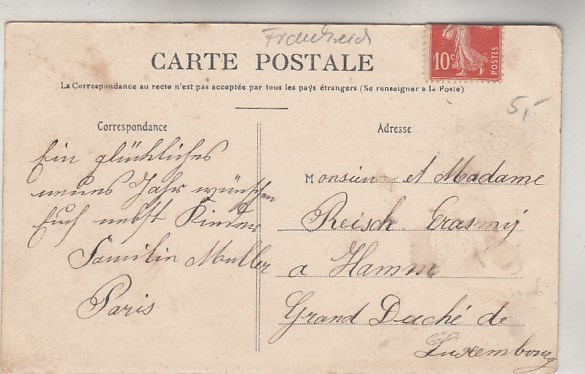 Frankreich
CARTE POSTALE
La Correspondance au recto n'est pas acceptée par tous les pays étrangers (Se renseigner à la Poste)
10c POSTES
5,-
Correspondance
Adresse
Ein glückliches
neues Jahr wünschen
Euch nebst Kinder
Familie Muller
Paris
Monsieur et Madame
Reisch Erasmy
a Hamm
Grand Duché de
Luxembourg